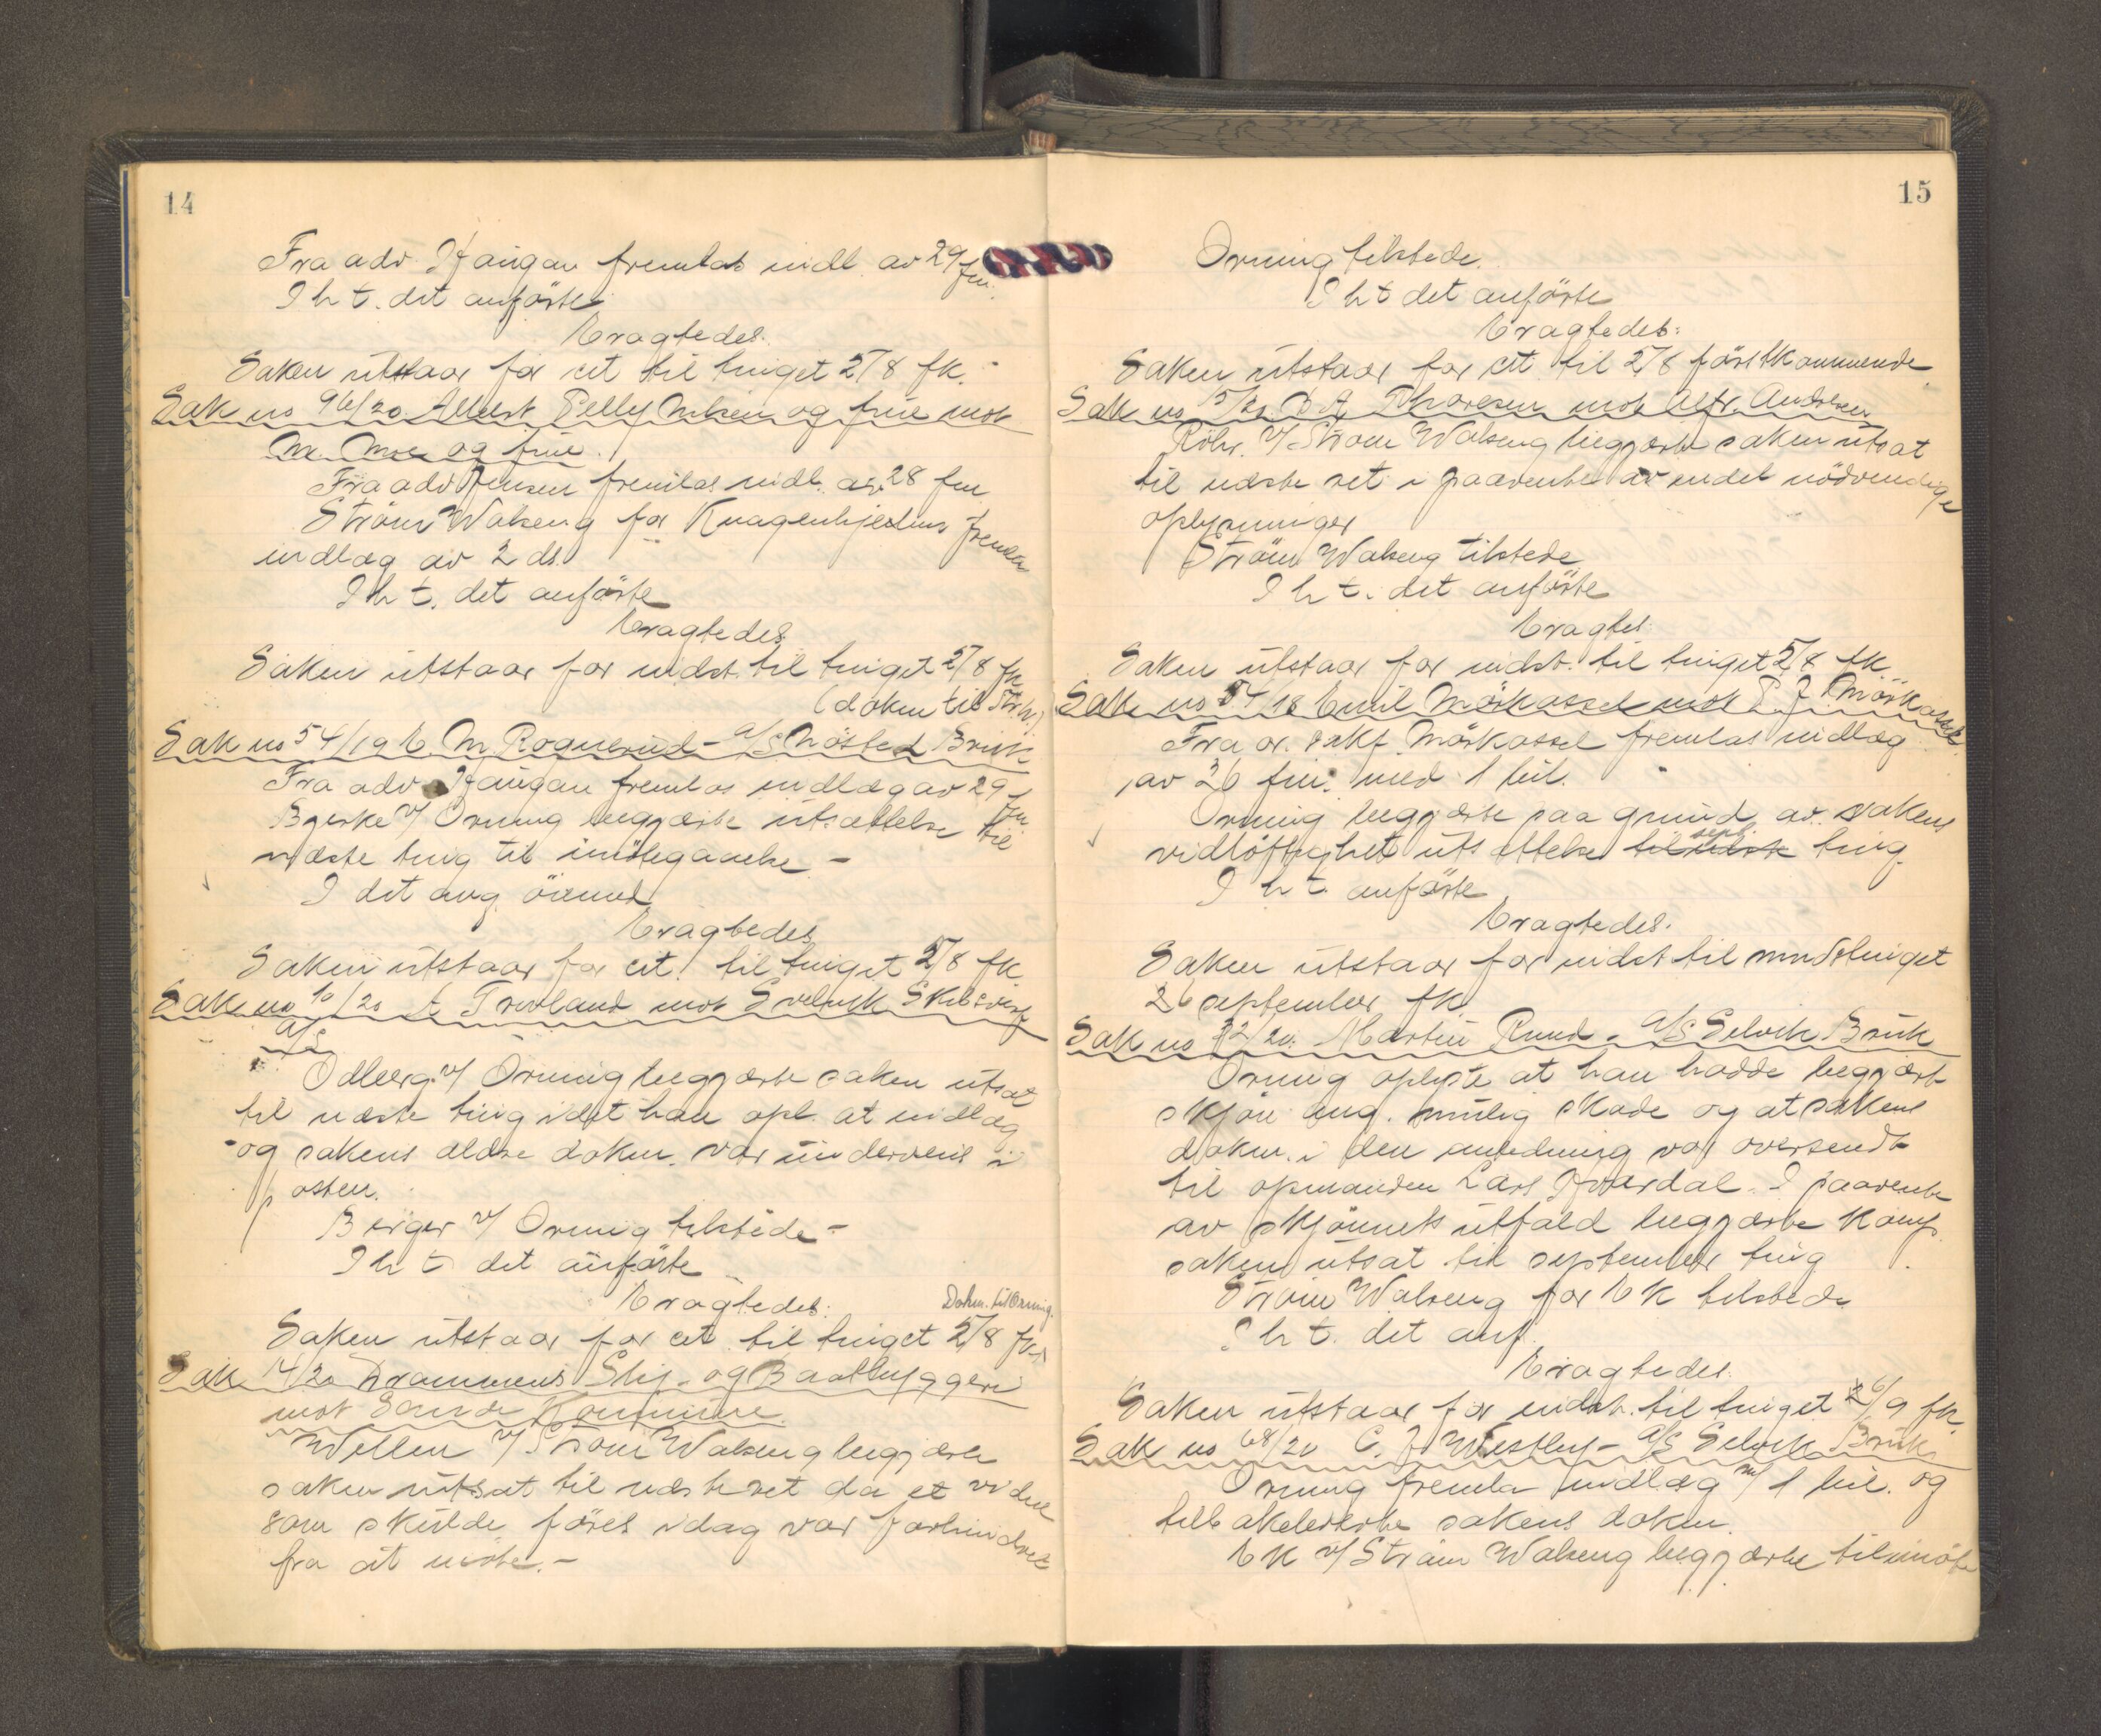 14
Fra adv. Haugan fremlas indl. av 29 fm.
I h t. det anførte
Eragtedes.
Saken utstaar for cit til tinget 5/8 fk.
Sak no 96/20 Pelly Nilsen og frue mot
M. Moe og frue.
Fra adv Jensen fremlas indl. av 28 fm
Strøm Walseng for Knagenhjelms fremla
indlæg av 2 ds.
I h t. det anførte
Eragtedes
Saken utstaar for indst. til tinget 5/8 fk
(dokm til Str W.)
Sak no 54/19 E. M. Rognerud - A/S Møsted Bruk
Fra adv. Haugan fremlas indlæg av 29 fm
Bjerke v/ Orning begjærte utsættelse til
næste ting til imøtegaaelse -
I det ang. øiemed
Eragtedes
Saken utstaar for cit. til tinget 5/8 fk
Sak no 10/20 mot Selvik Skibsverf
A/S
Odberg v/ Orning begjærte saken utsat
til næste ting idet han opl. at indlæg
og sakens ældre dokm. var underveis i
posten.
Berger v/ Orning tilstede -
I h t det anførte
Eragtedes:
Dokm. til Orning.
Saken utstaar for cit til tinget 5/8 fk.
Sak 14/20 Drammens Slip- og Baatbyggeri
mot Sande Kommune.
Wellen v/ Strøm Walseng begjærte
saken utsat til næste ret da et vidne
som skulde føres idag var forhindret
fra at møte. -
15
Orning tilstede.
I h t det anførte
Eragtedes:
Saken utstaar for cit til 5/8 førstkommende
Sak no 15/20 Thoresen mot Alfr. Andersen
Röhr. v/ Strøm Walseng begjærte saken utsat
til næste ret i paavente av endel nødvendige
oplysninger
Strøm Walseng tilstede
I h t. det anførte
Eragtes.
Saken utstaar for indst. til tinget 5/8 fk
Sak no 54/18 Emil Mørkassel mot P. J. Mørkassel
Fra o. sakf. Mørkassel fremlas indlæg
av 26 fm. med 1 bil.
Orning begjærte paa grund av sakens
vidløftighet utsættelse til næste sept. ting
I h t. anførte
Eragtedes.
Saken utstaar for indst til tinget
26 september fk.
Sak no 32/20. Martin Ruud - A/S Selvik Bruk
Orning oplyste at han hadde begjært
skjøn ang. mulig skade og at sakens
dokm. i den anledning var oversendt
til opmanden Lars Hverdal. I paavente
av skjønnets utfald begjærte komp.
saken utsat til september ting.
Strøm Walseng for E K tilstede
I h t. det anf.
Eragtedes.
Saken utstaar for indst. til tinget 26/9 fk.
Sak no 68/20 C. J. Westby - A/S Selvik Bruk
Orning fremla indlæg m/ 1 bil. og
tilbakeleverte sakens dokm.
E K v/ Strøm Walseng begjærte tilimøte